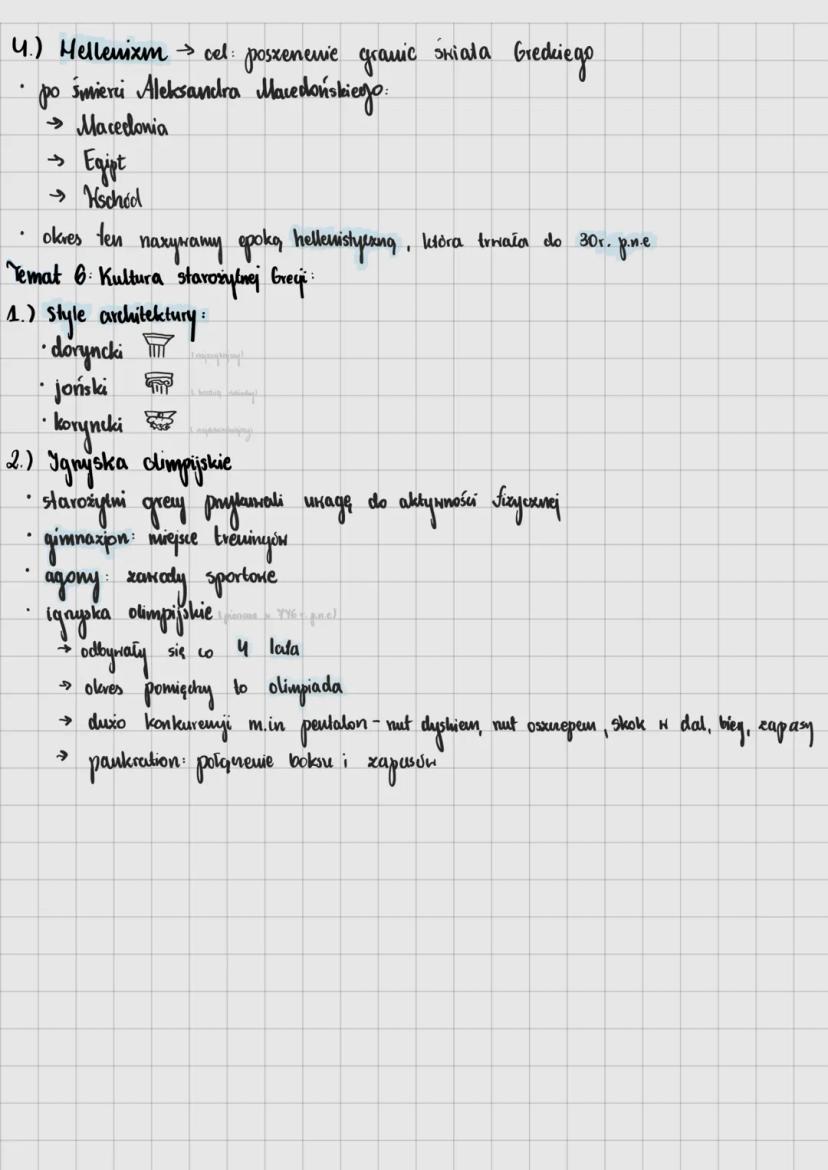 4.) Hellenizm → cel: poszerzenie granic świata Greckiego
• po śmierci Aleksandra Macedońskiego:
→ Macedonia
→ Egipt
→ Wschód
• okres ten nazywamy epoką hellenistyczną, która trwała do 30r. p.n.e
Temat 6: Kultura starożytnej Grecji:
1.) Style architektury:
• doryncki (najzwyklejszy)
• joński
• koryncki
2.) Igryska olimpijskie
• starożytni grecy przykuwali uwagę do aktywności fizycznej
• gimnazjon: miejsce treningów
• agony: zawody sportowe
• igryska olimpijskie (pierwsze w 776 r. p.n.e)
→ odbywały się co 4 lata
→ okres pomiędzy to olimpiada
→ dużo konkurencji m.in pentalon - rzut dyskiem, rzut oszczepem, skok w dal, bieg, zapasy
→ pankration: połączenie boksu i zapasów